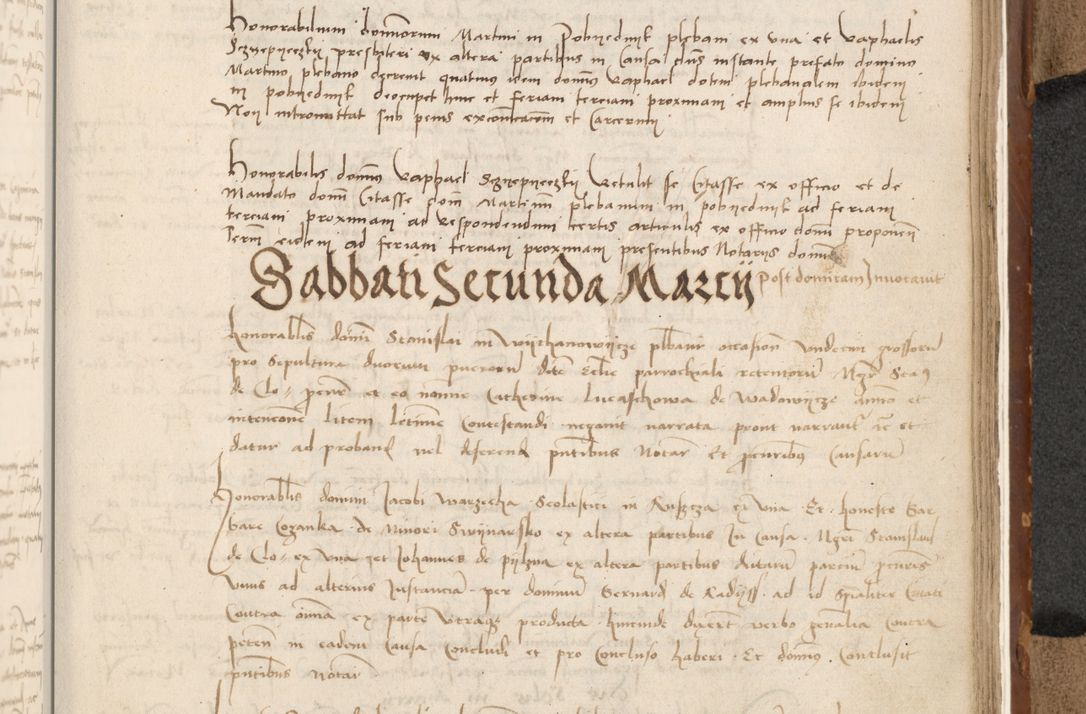 Honorabilium domnorum Martini in Pobyednik plebani ex una et Raphaelis
Sczepyeczky presbiteri ex altera partibus in Causa dns instante prefato domino
Martino plebano decrevit quatinus idem domns Raphael dotem plebanalem ibidem
in pobyednik deoccupet hinc et feriam terciam proximam et amplius se ibidem
Non intromittat sub penis excomicacionis et Carceriny
Honorabilis domns Raphael Retulit se Citasse ex officio et de
Mandato domni Citasse dom Martinum plebanum in pobyednik ad feriam
terciam proximam ad respondendum certis articulis ex officio domni proponen
Term eidem ad feriam terciam proximam presentibus Notarys domns
Sabbati Secunda Marcij Post dominicam Invocavit
honorablis domni Stanislai in plbani occasion undecim grossorum
pro sepultura duorum puerorum dicte Eclie parrochiali retentorum Mgr Stans
de Clo pcur et eo nomine Catherine Lucaschowa de Wadowycze animo et
intencione litem letime Contestandi negavit narrata prout narrantur ac ei
datur ad proband vel deferend pntibus Notar Et pcuribus Causarum
honorablis domini Jacobi Warzecha Scolastici in ex una Et honeste Bar
bare Cozanka de Minori Swynarsko ex altera partibus In Causa Mgri Stanislaus
de Clo ex una et Johannes de pylzna ex altera partibus dictarum parcium pcures
unus ad alterius Instanciam per dominum Bernard de ad id spialiter Citati
Contra omnia ex parte utraque producta hincinde dixerunt verbo genalia Contra
peten in eadem Causa Concludi et pro Concluso haberi Et domns Conclusit
pntibus Notar